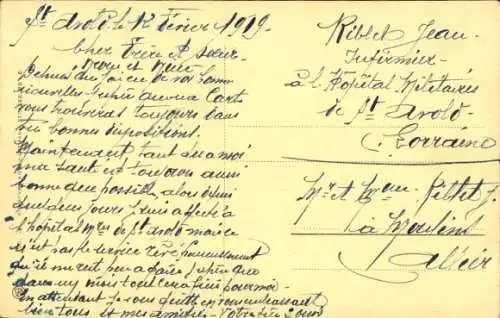 St Avold, le 12 Février 1919.
Cher Frère et Sœur
Neveu et Nièce
nouvelles. J'espère que ma Carte
vous trouvera toujours dans
bonnes dispositions.
Maintenant tant qu'a moi
ma santé est toujours aussi
bonne que possible, alors depuis
quelques jours je suis affecté à
l'hôpital Mre de St Avold mais ce
n'est pas le service rêvé heureusement
qu'il me reste peu a faire j'espère que
dans un mois tout sera fini pour moi.
En attendant je vous quitte en vous embrassant
bien tous et mes amitiés. Votre frère Jean
Riblet Jean
Infirmier
à l'Hôpital Militaires
de St Avold
Lorraine
Mr et Mme Riblet J.
à Moulins
Allier